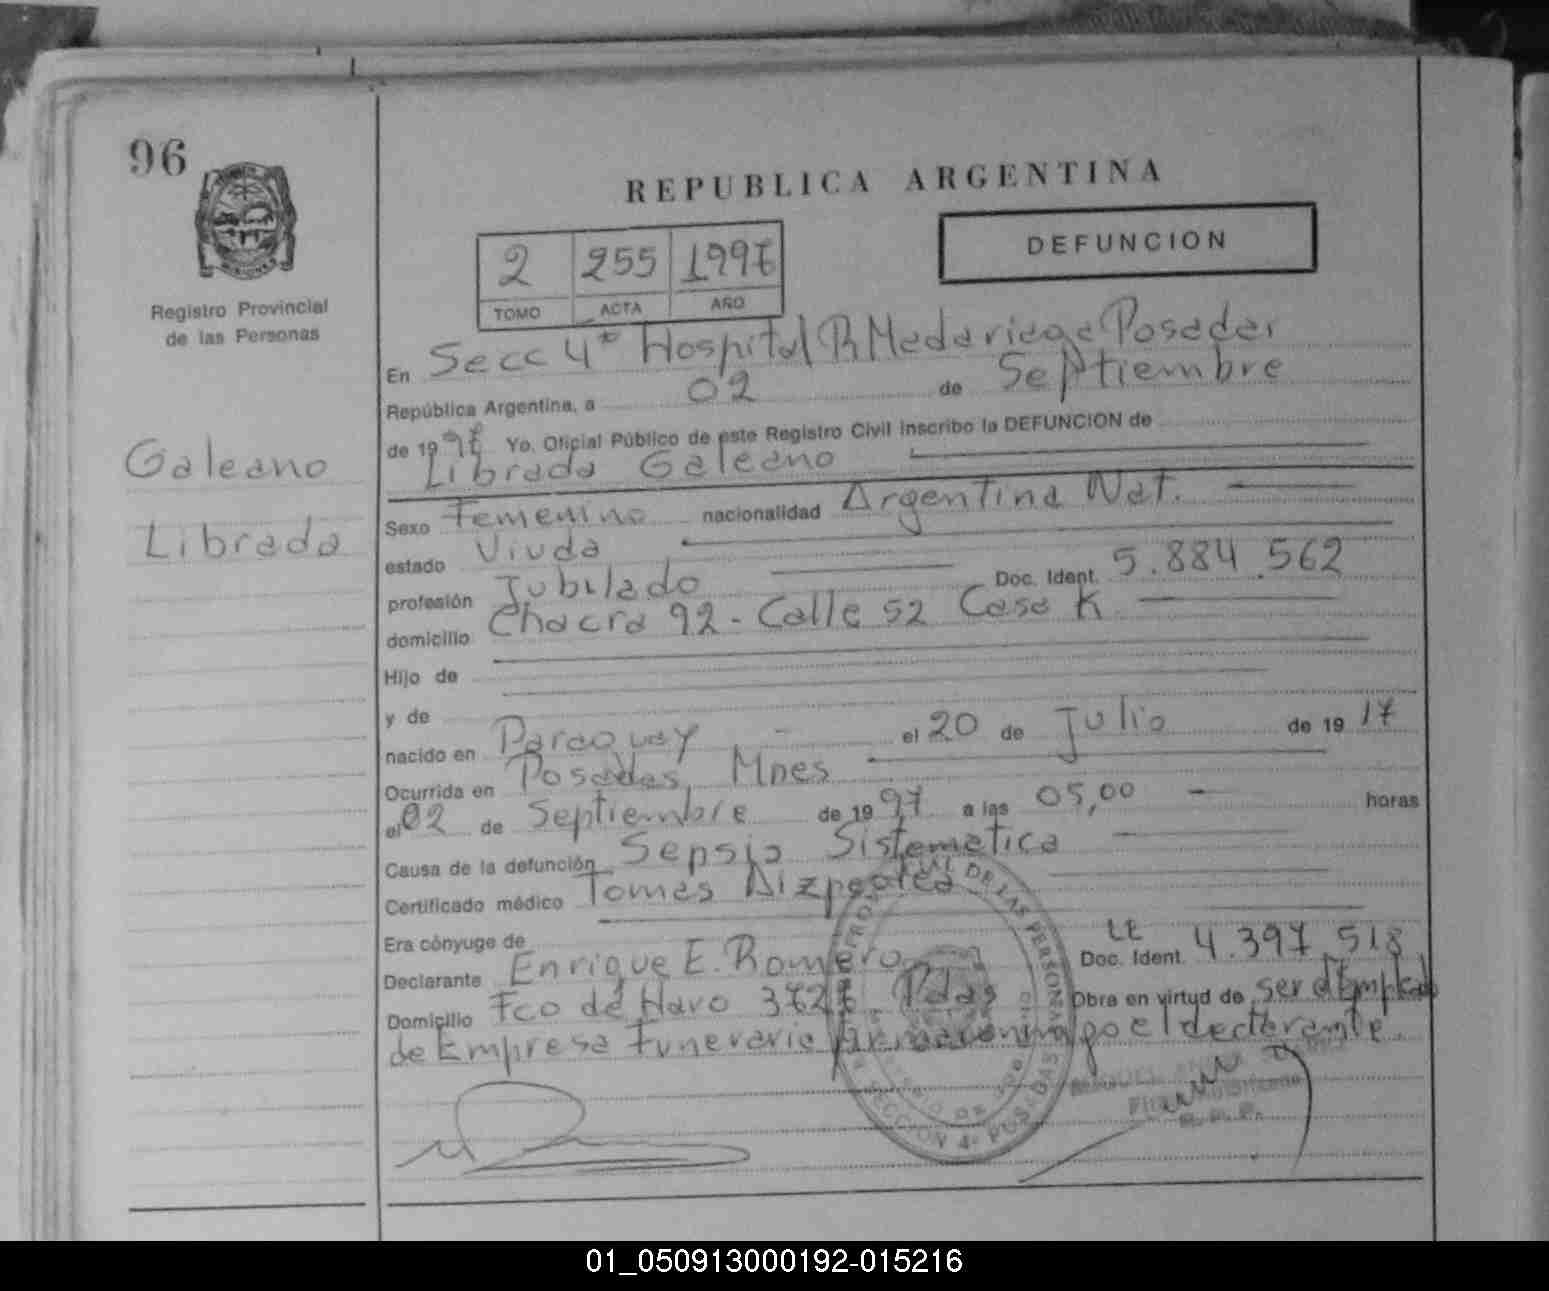 96
REPUBLICA ARGENTINA
DEFUNCION
2 255 1997
TOMO ACTA AÑO
Registro Provincial
de las Personas
Galeano
Librada
En Secc 4ª Hospital R Madariaga Posadas
República Argentina, a 02 de Septiembre
de 1997 Yo, Oficial Público de este Registro Civil inscribo la DEFUNCION de
Librada Galeano
Sexo Femenino nacionalidad Argentina Nat.
estado Viuda
profesión Jubilado Doc. Ident. 5.884.562
domicilio Chacra 92 - Calle 52 Casa K
Hijo de
y de
nacido en Paraguay el 20 de Julio de 1917
Ocurrida en Posadas Mnes
el 02 de Septiembre de 1997 a las 05,00 horas
Causa de la defunción Sepsis Sistematica
Certificado médico Tomas
Era cónyuge de
Declarante Enrique E. Romero LE Doc. Ident. 4.397.518
Domicilio Fco de Haro 3727 Pdas Obra en virtud de ser el Emplead
de Empresa Funeraria el declarante
SECCION 4ª POSADAS
01_050913000192-015216